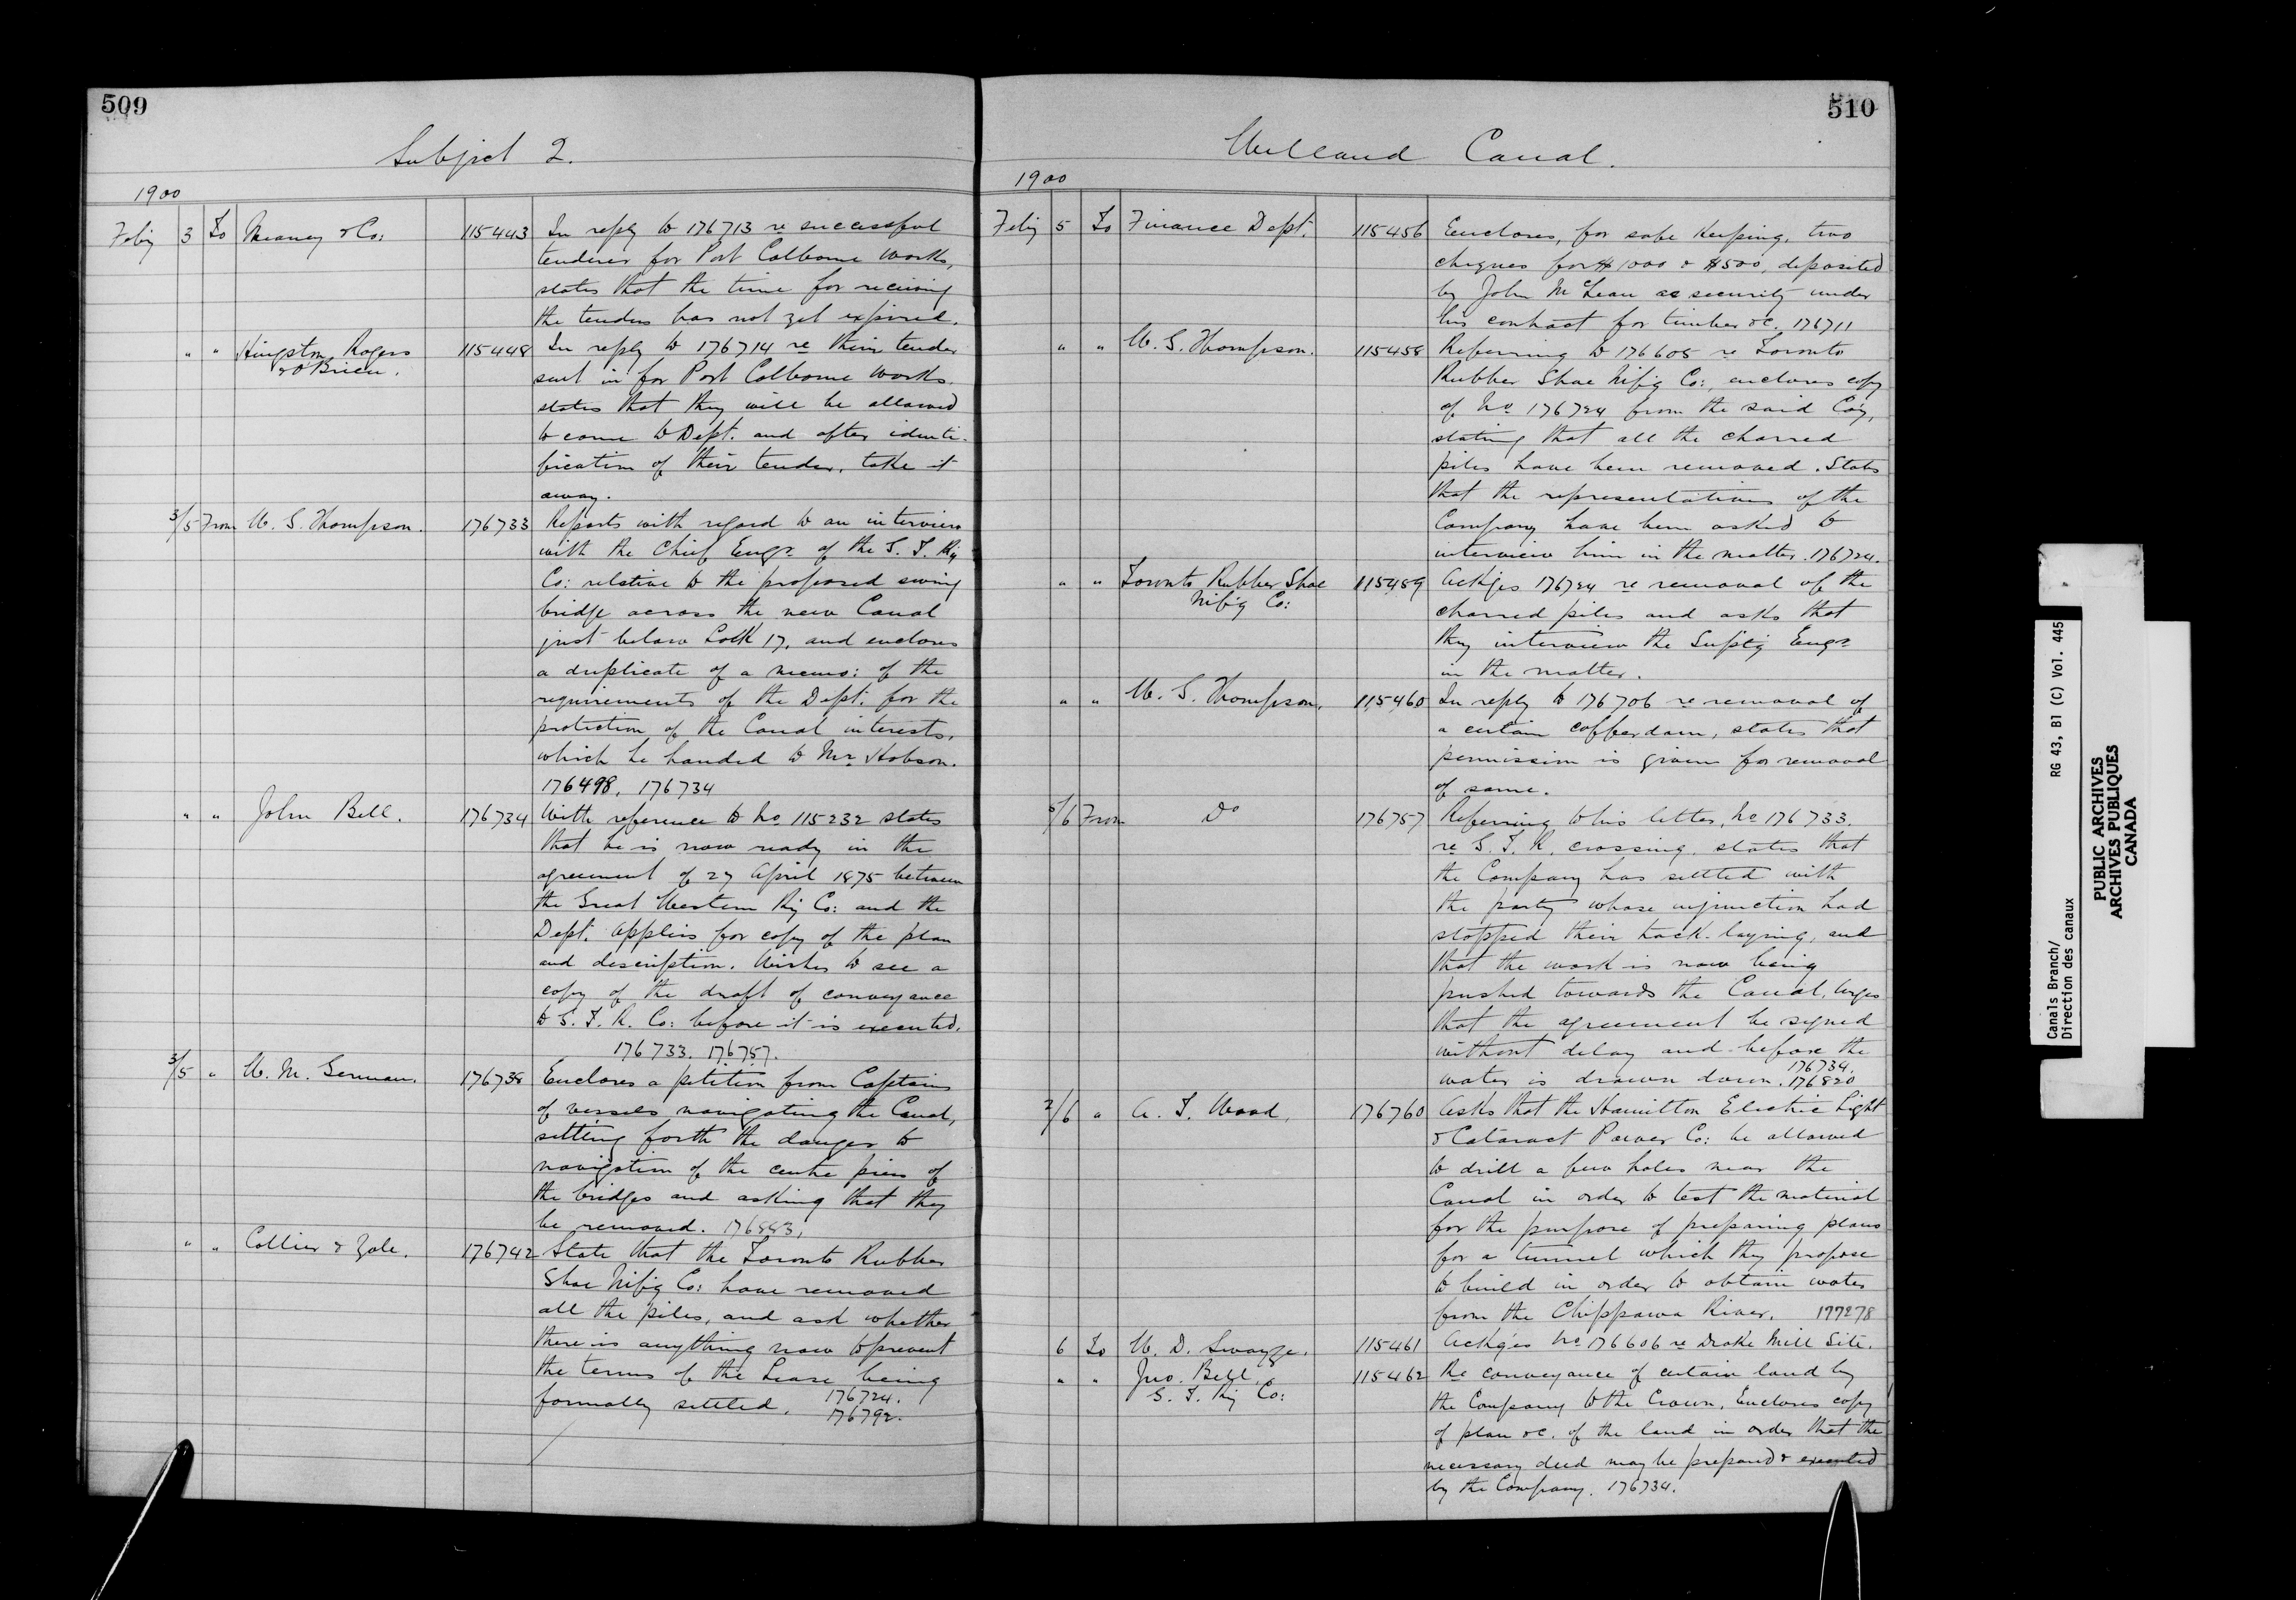 509
Subject 2.
1900
Feb'y 3 To Meaney & Co: 115443 In reply to 176713 re successful
tenderer for Port Colborne works,
states that the time for receiving
the tenders has not yet expired.
" " Kingston, Rogers & O'Brien. 115448 In reply to 176714 re their tender
sent in for Port Colborne works.
states that they will be allowed
to come to Dept. and after identi-
fication of their tender, take it
away.
3/5 From W. G. Thompson. 176733 Reports with regard to an interview
with the Chief Engr. of the G. T. Ry
Co: relative to the proposed swing
bridge across the new Canal
just below Lock 17, and encloses
a duplicate of a memo: of the
requirements of the Dept. for the
protection of the Canal interests,
which he handed to Mr. Hobson.
176498, 176734
" " John Bell. 176734 With reference to No. 115232 states
that he is now ready in the
agreement of 27 April 1875 between
the Great Western Ry Co: and the
Dept. Applies for copy of the plan
and description. Wishes to see a
copy of the draft of conveyance
to G. T. R. Co: before it is executed.
176733. 176757.
3/5 " W. M. German. 176738 Encloses a petition from Captains
of vessels navigating the Canal,
setting forth the danger to
navigation of the centre piers of
the bridges and asking that they
be removed. 176883,
" " Collier & Yale. 176742 State that the Toronto Rubber
Shoe M'f'g Co: have removed
all the piles, and ask whether
there is anything now to prevent
the terms of the Lease being
formally settled. 176724.
176792.
510
Welland Canal.
1900
Feb'y 5 To Finance Dept. 115456 Encloses, for safe keeping, two
cheques for $1000 & $500, deposited
by John McLean as security under
his contract for timber &c. 176711
" " W. G. Thompson. 115458 Referring to 176605 re Toronto
Rubber Shoe M'f'g Co:, encloses copy
of No. 176724 from the said Co'y,
stating that all the charred
piles have been removed. States
that the representatives of the
Company have been asked to
interview him in the matter. 176724.
" " Toronto Rubber Shoe M'f'g Co: 115459 Ackges 176724 re removal of the
charred piles and asks that
they interview the Supt'g Engr.
in the matter.
" " W. G. Thompson. 115460 In reply to 176706 re removal of
a certain cofferdam, states that
permission is given for removal
of same.
5/6 From Do 176757 Referring to his letter, No. 176733.
re G. T. R. crossing, states that
the Company has settled with
the party whose injunction had
stopped their track-laying, and
that the work is now being
pushed towards the Canal. Urges
that the agreement be signed
without delay and before the
water is drawn down. 176734.
176820
2/6 " A. T. Wood. 176760 Asks that the Hamilton Electric Light
& Cataract Power Co: be allowed
to drill a few holes near the
Canal in order to test the material
for the purpose of preparing plans
for a tunnel which they propose
to build in order to obtain water
from the Chippawa River. 177278
6 To W. D. Swayze. 115461 Ackges No. 176606 re Drake Mill Site.
" " Jno. Bell, G. T. Ry Co: 115462 Re conveyance of certain land by
the Company to the Crown, Encloses copy
of plan &c. of the land in order that the
necessary deed may be prepared & executed
by the Company. 176734.
Canals Branch/
Direction des canaux
RG 43, B1 (C) Vol. 445
PUBLIC ARCHIVES
ARCHIVES PUBLIQUES
CANADA